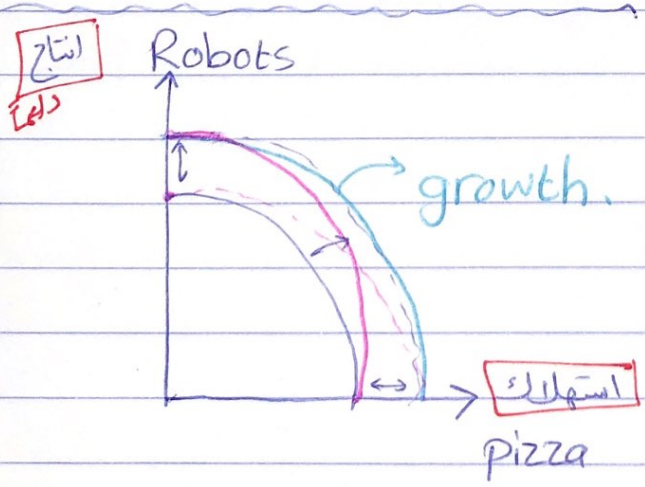 انتاج
Robots
دايماً
growth.
استهلاك
pizza